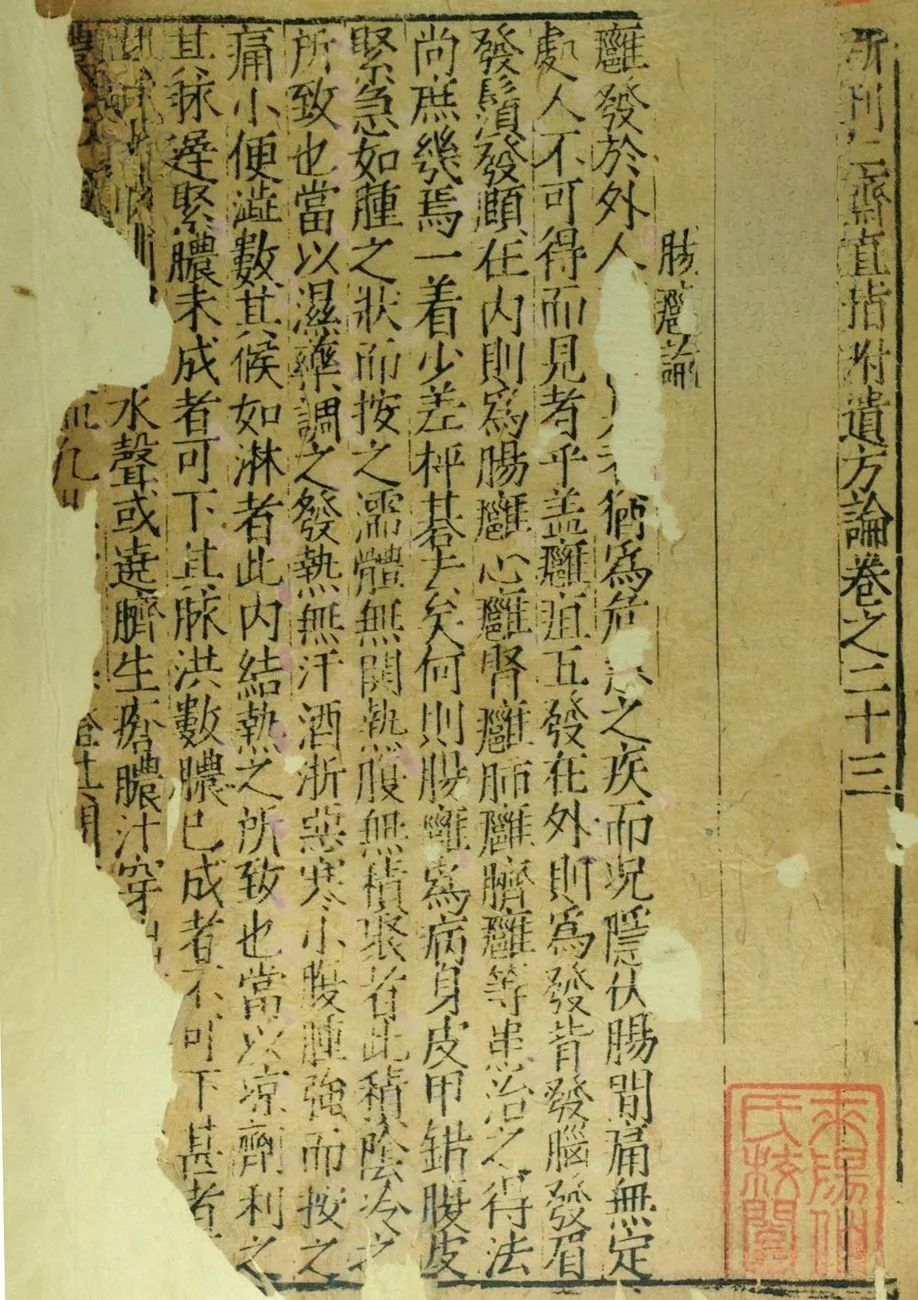 新刊仁齋直指附遺方論卷之二十三
腸癰論
癰發於外人 猶為危 之疾而況隱伏腸間痛無定
處人不可得而見者乎盖癰疽五發在外則為發背發腦發眉
發鬚發頤在內則為腸癰心癰腎癰肺癰臍癰等患治之得法
尚庶幾焉一着少差枰碁去矣何則腸癰為病身皮甲錯腹皮
緊急如腫之狀而按之濡體無関熱腹無積聚者此積陰冷之
所致也當以濕藥調之發熱無汗洒淅惡寒小腹腫強而按之
痛小便澁數其候如淋者此內結熱之所致也當以凉劑利之
其脉遟緊膿未成者可下其脉洪數膿已成者不可下甚者
水聲或遶臍生瘡膿汁穿